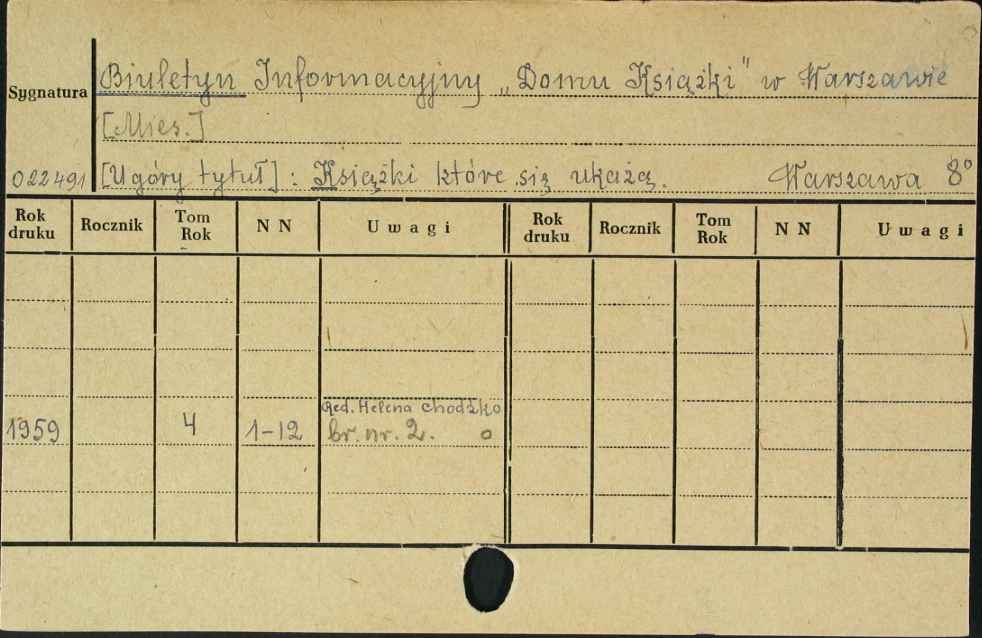 Biuletyn Informacyjny „Domu Książki" w Warszawie
Sygnatura
[Mies.]
022491 [U góry tytuł] : Książki które się ukażą. Warszawa 8°
Rok druku Rocznik Tom Rok N N Uwagi Rok druku Rocznik Tom Rok N N Uwagi
Red. Helena Chodźko
1959 4 1-12 br. nr. 2. o